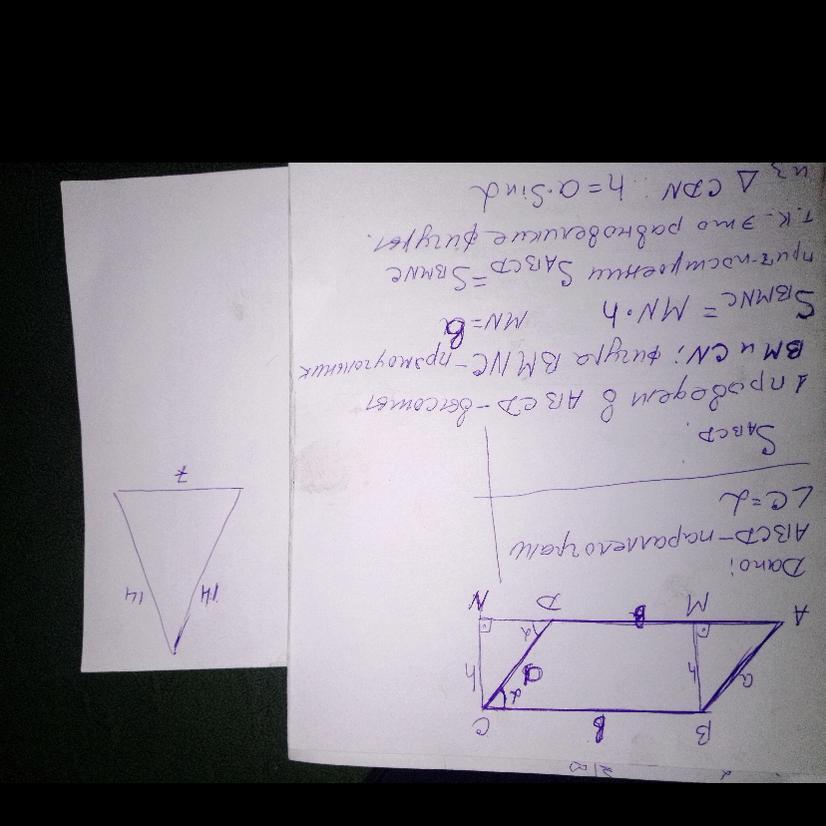 B
B C
a h a α h
α
A M B D N
Дано:
ABCD - параллелограм
∠C = α
SABCD.
1 проведем в ABCD - высоты
BM и CN; фигура BMNC - прямоугольник
SBMNC = MN·h MN = B
при построении SABCD = SBMNC
т.к. это равновеликие фигуры.
из △ CDN: h = a·Sinα
14 14
7